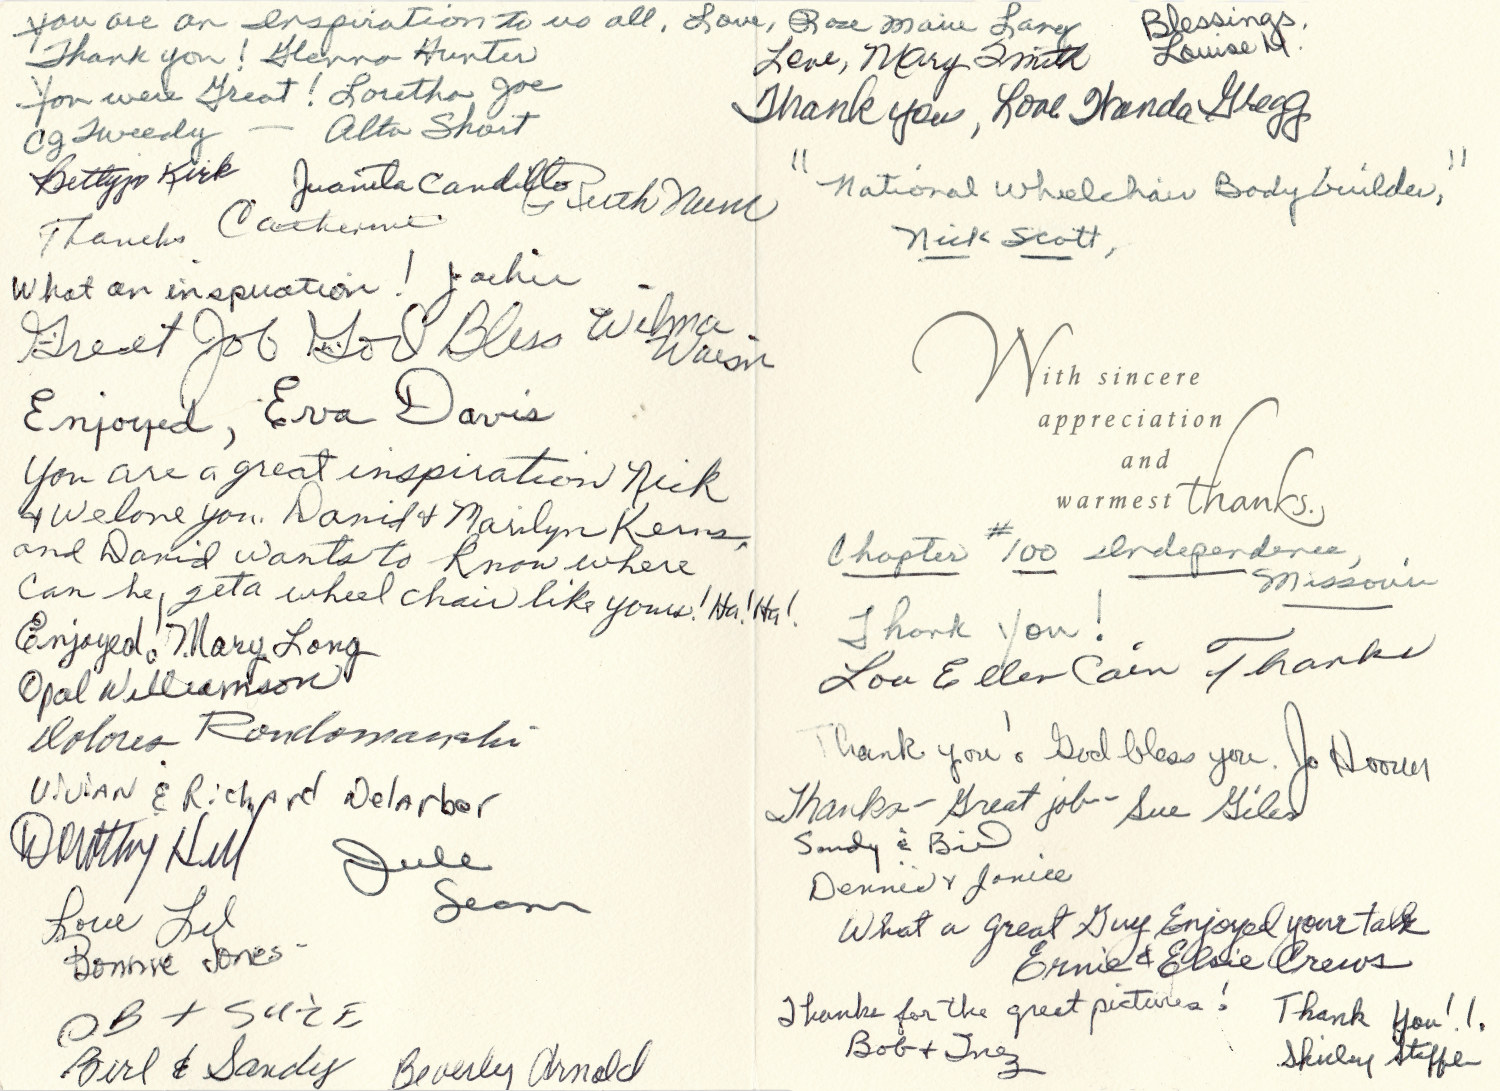 You are an Inspiration to us all, Love, Rose Marie Lang
Thank you! Glenna Hunter
You were Great! Loretha Joe
CJ Tweedy — Alta Short
Bettyjo Kirk Juanita Candillo Ruth Nunn
Thanks Catherine
What an inspiration! Jackie
Great Job God Bless Wilma
Enjoyed, Eva Davis
You are a great inspiration Nick
& we love you. David & Marilyn Kerns,
and David wants to know where
can he get a wheel chair like yours! Ha! Ha!
Enjoyed! Mary Long
Opal Williamson
Dolores
Vivian & Richard Delarber
Dorothy Hill
Love Lil
Bonnie Jones
OB + SUZE
Birl & Sandy Beverly Arnold
Blessings,
Louise M.
Love, Mary Smith
Thank you, Love Wanda Gregg
"National Wheelchair Body builder,"
Nick Scott,
With sincere
appreciation
and
warmest thanks.
Chapter #100 Independence,
Missouri
Thank You!
Lou Ellen Cain Thanks
Thank you! God bless you. Jo Hoover
Thanks - Great job - Sue Giles
Sandy & Bill
Dennis & Janice
What a great Guy Enjoyed your talk
Ernie & Elsie Crews
Thanks for the great pictures!
Bob + Inez
Thank You!!
Shirley